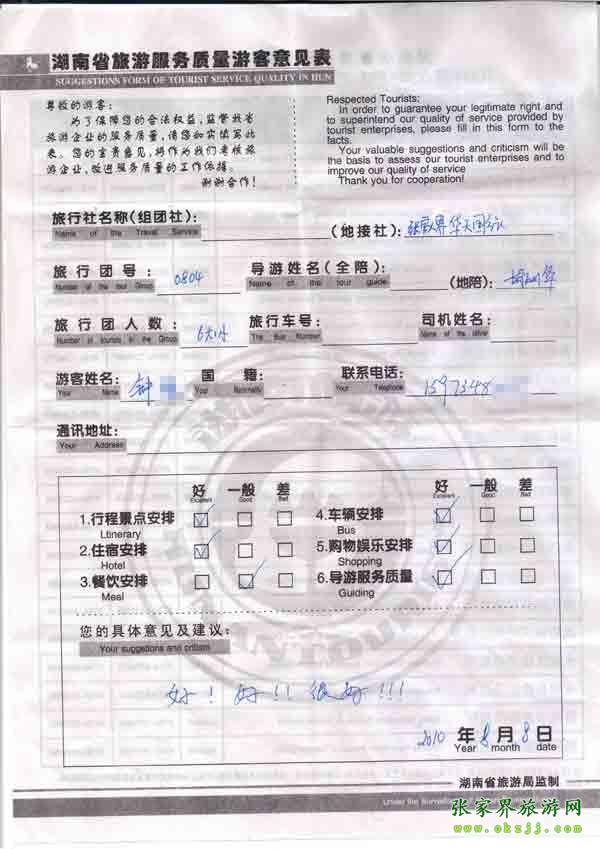 湖南省旅游服务质量游客意见表
SUGGESTIONS FORM OF TOURIST SERVICE QUALITY IN HUN
尊敬的游客:
为了保障您的合法权益,监督我省
旅游企业的服务质量,请您如实填写此
表。您的宝贵意见,将作为我们考核旅
游企业,改进服务质量的工作依据。
谢谢合作!
Respected Tourists:
In order to guarantee your legitimate right and
to superintend our quality of service provided by
tourist enterprises, please fill in this form to the
facts.
Your valuable suggestions and criticism will
be the basis to assess our tourist enterprises and to
improve our quality of service
Thank you for cooperation!
旅行社名称(组团社): (地接社): 张家界华天国旅
Name of the Travel Service
旅行团号: 0804 导游姓名(全陪) (地陪):
Number of the tour Group Name of the tour guide
旅行团人数: 6大1小 旅行车号: 司机姓名:
Number of tourists in the Group The Bus Number Name of the driver
游客姓名: 钟 国籍: 联系电话: 1597348
Your Name Your Nationality Your Telephone
通讯地址:
Your Address
好 一般 差 好 一般 差
Excellent Good Bad Excellent Good Bad
1.行程景点安排 4.车辆安排
Ltinerary Bus
2.住宿安排 5.购物娱乐安排
Hotel Shopping
3.餐饮安排 6.导游服务质量
Meal Guiding
您的具体意见及建议:
Your suggetions and critism
好! 好!! 很好!!!
2010 年 8 月 8 日
Year month date
湖南省旅游局监制
Under the Surveillance
张家界旅游网
www.okzjj.com